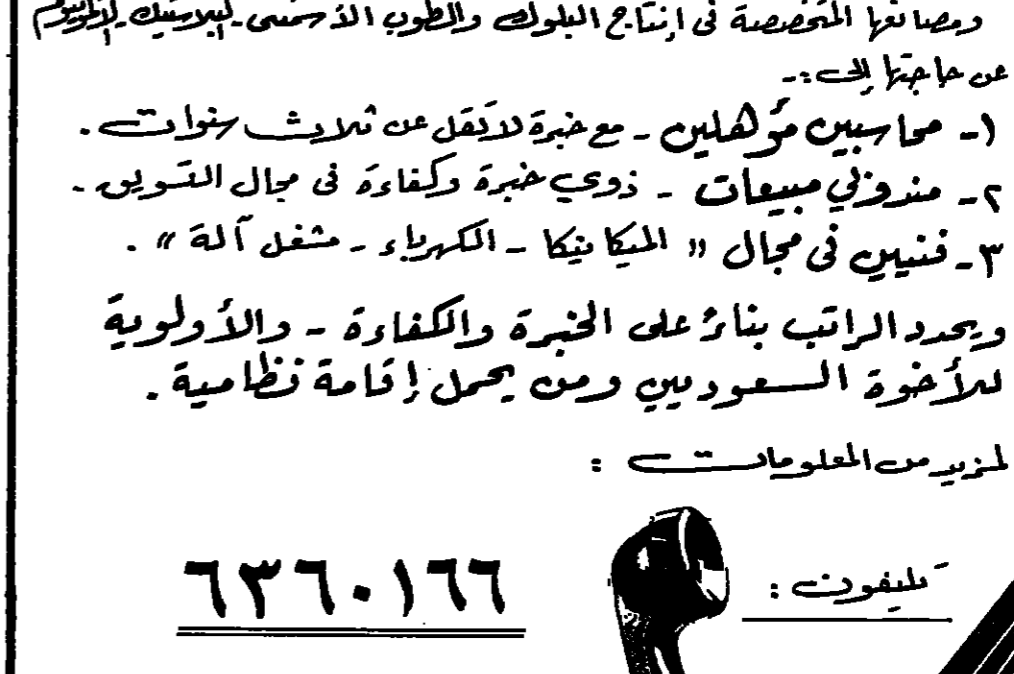 ومصانعها المتخصصة فى إنتاج البلوك والطوب الأسمنتى - البلاستيك -
عن حاجتها إلى :-
١- محاسبين مؤهلين - مع خبرة لاتقل عن ثلاث سنوات .
٢- مندوبي مبيعات - ذوي خبرة وكفاءة فى مجال التسويق .
٣- فنيين فى مجال « الميكانيكا - الكهرباء - مشغل آلة » .
ويحدد الراتب بناءً على الخبرة والكفاءة - والأولوية
للأخوة السعوديين ومن يحمل إقامة نظامية .
لمزيد من المعلومات :
تليفون :
٦٣٦٠١٦٦